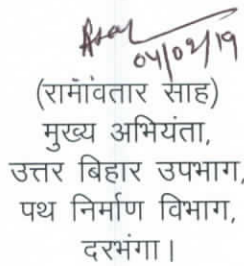 04/02/19
(रामांवतार साह)
मुख्य अभियंता,
उत्तर बिहार उपभाग,
पथ निर्माण विभाग,
दरभंगा।